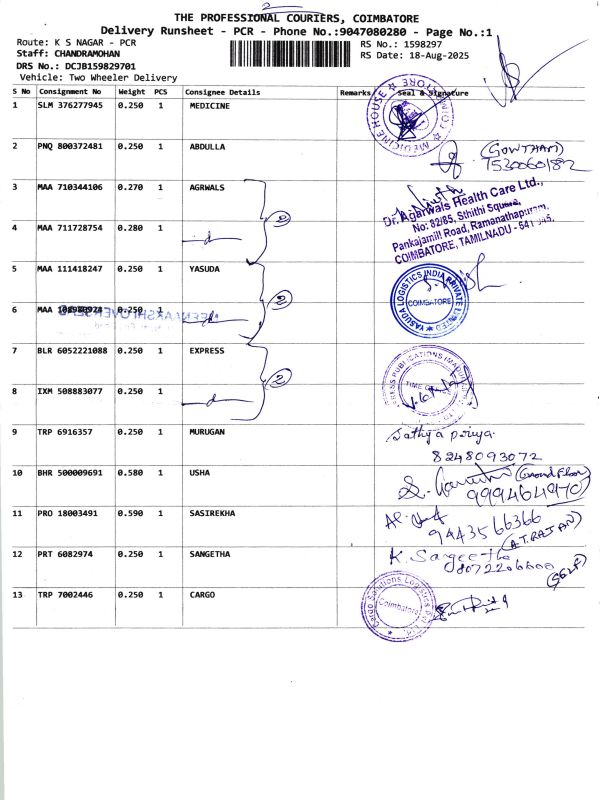 2
THE PROFESSIONAL COURIERS, COIMBATORE
Delivery Runsheet - PCR - Phone No.:9047080280 - Page No.:1
Route: K S NAGAR - PCR
RS No.: 1598297
Staff: CHANDRAMOHAN
RS Date: 18-Aug-2025
DRS No.: DCJB159829701
Vehicle: Two Wheeler Delivery
S No Consignment No Weight PCS Consignee Details Remarks Seal & Signature
1 SLM 376277945 0.250 1 MEDICINE
MEDICINE HOUSE
2 PNQ 800372481 0.250 1 ABDULLA
(GOWTHAM)
7530060182
3 MAA 710344106 0.270 1 AGRWALS
Dr. Agarwals Health Care Ltd.,
No: 82/85, Sthithi Square,
Pankajamill Road, Ramanathapuram,
COIMBATORE, TAMILNADU - 641 045.
4 MAA 711728754 0.280 1
id
2
5 MAA 111418247 0.250 1 YASUDA
YASUDA LOGISTICS INDIA PRIVATE LIMITED
COIMBATORE
6 MAA 0.250 1
id
2
7 BLR 6052221088 0.250 1 EXPRESS
8 IXM 508883077 0.250 1
id
2
9 TRP 6916357 0.250 1 MURUGAN
Sathya priya.
8248093072
10 BHR 500009691 0.580 1 USHA
(Ground Floor)
9994649170
11 PRO 18003491 0.590 1 SASIREKHA
9443566366
(A.T.RAJAN)
12 PRT 6082974 0.250 1 SANGETHA
K. Sangeetha
8072206600
(Self)
13 TRP 7002446 0.250 1 CARGO
Cargo Solutions Logistics Pvt Ltd.
Coimbatore